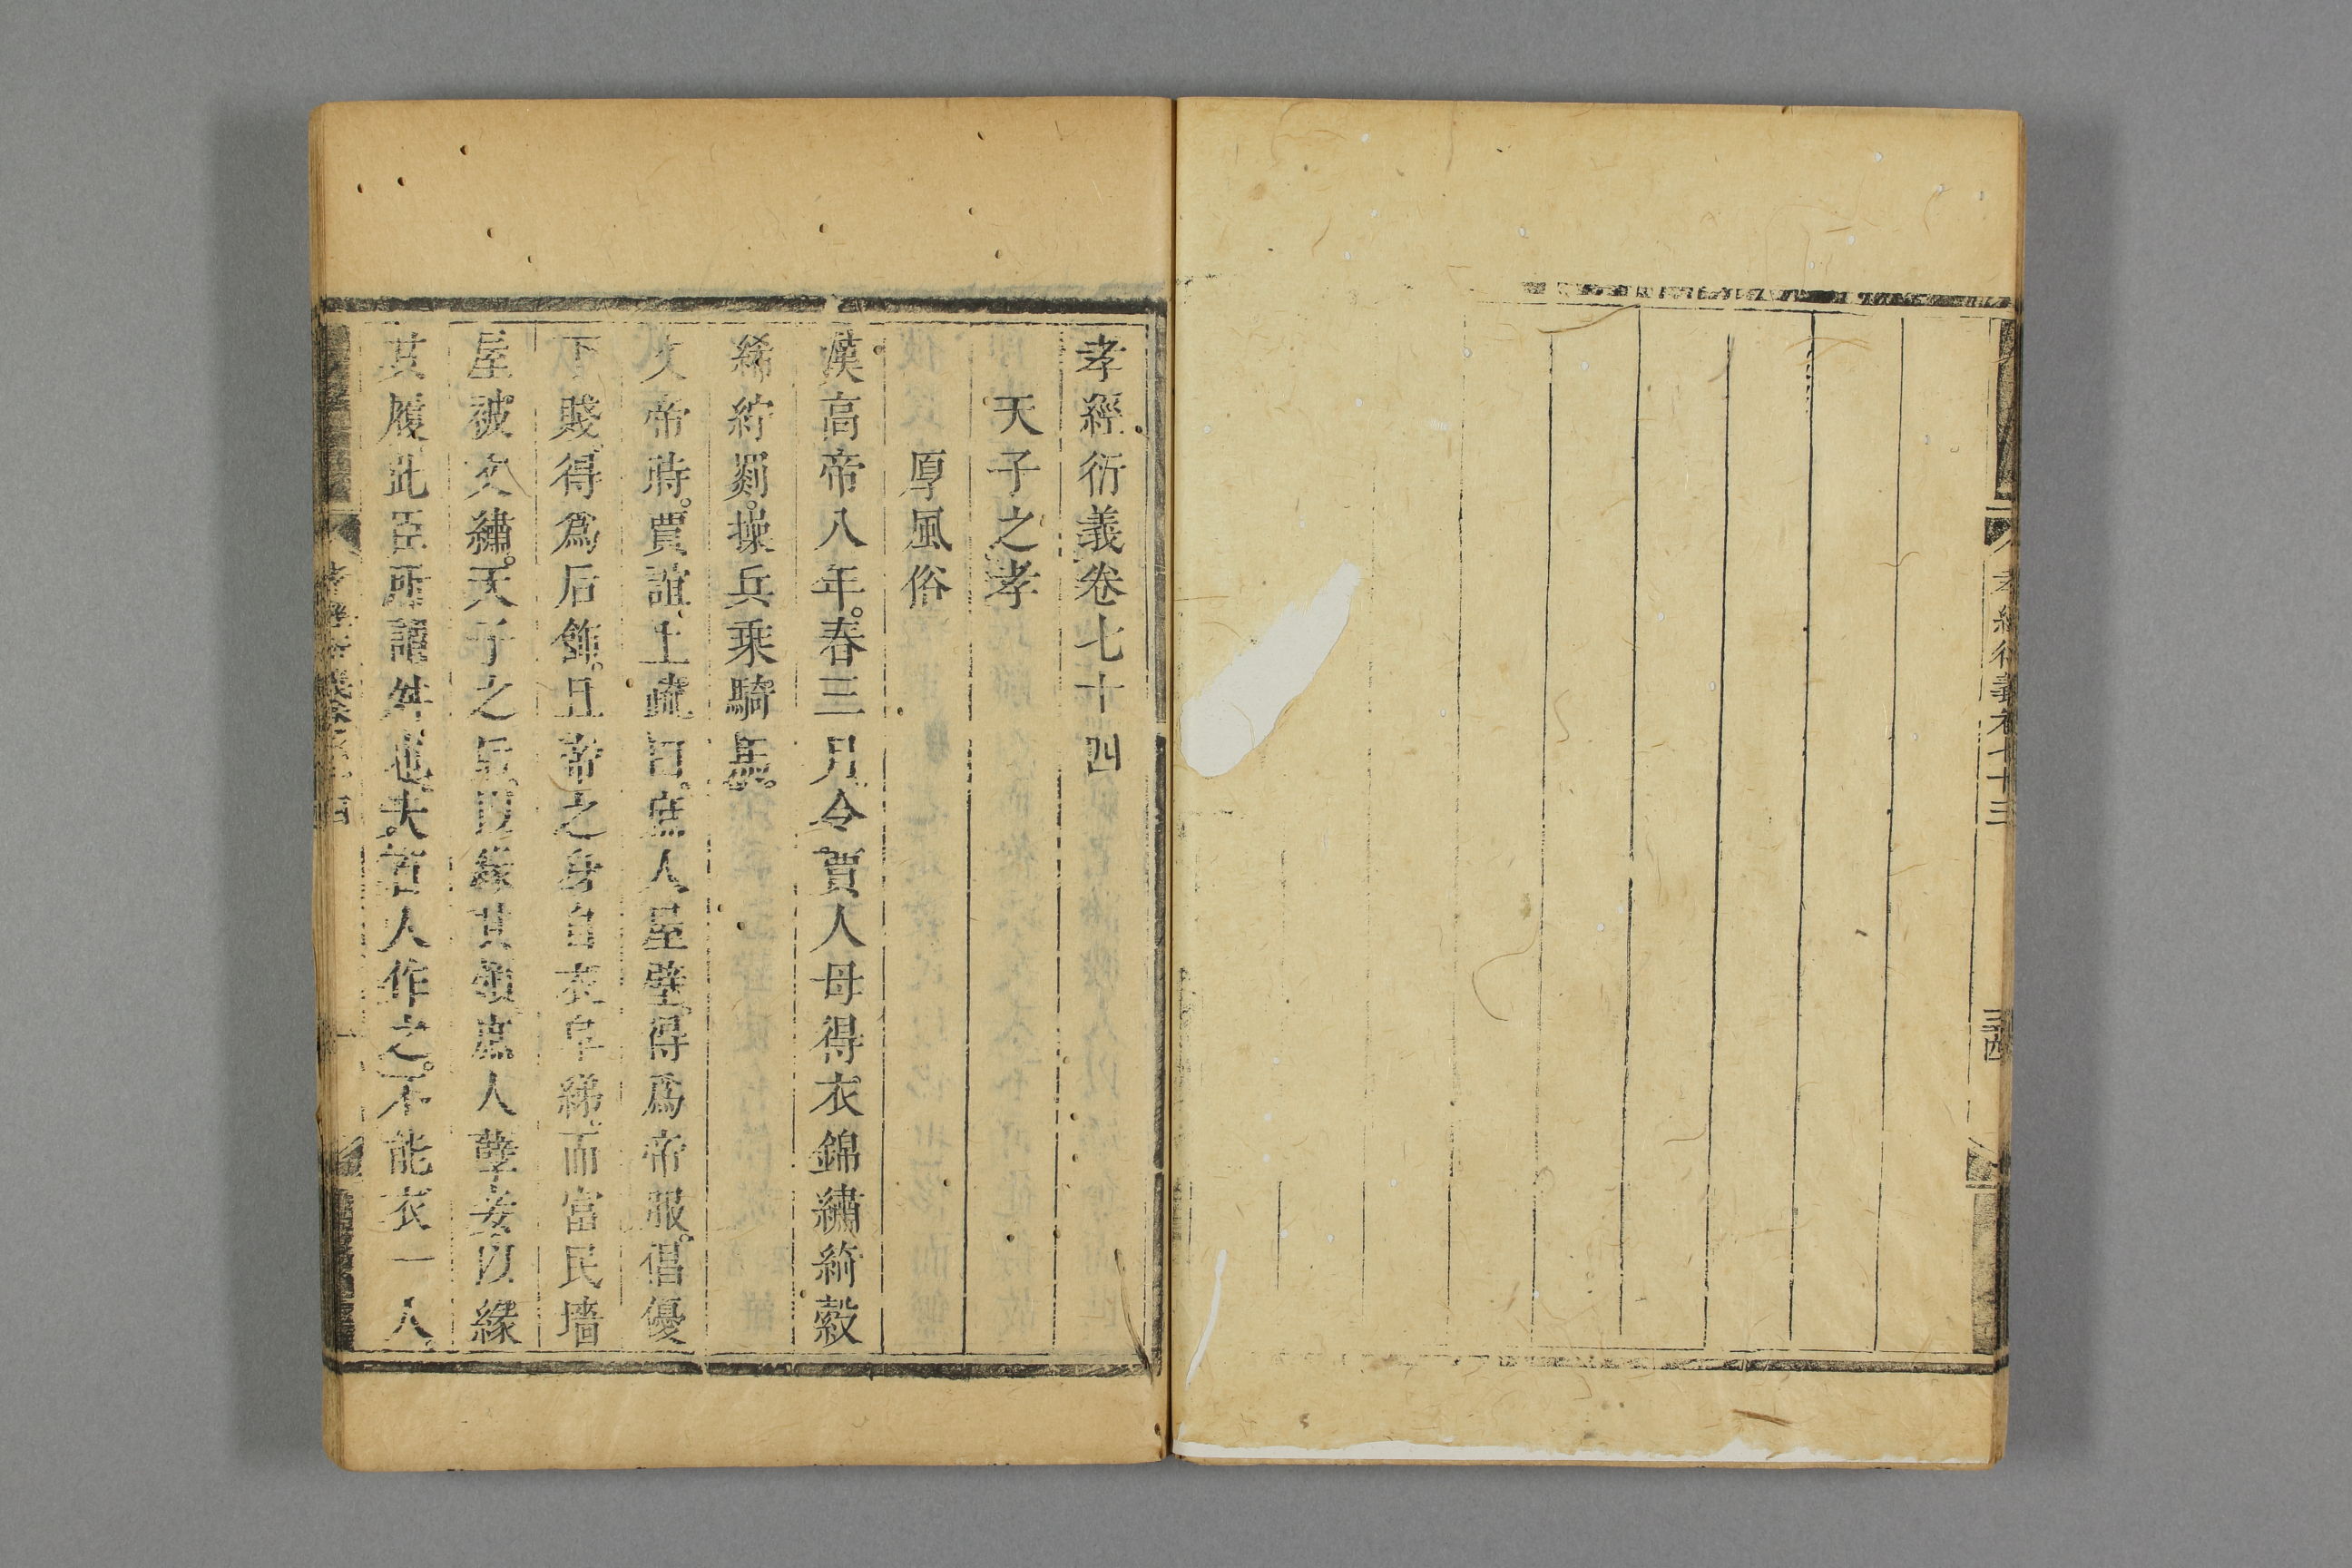 孝經衍義卷七十三
三四
孝經衍義卷七十四
天子之孝
厚風俗
漢高帝八年。春三月。令賈人母得衣錦繡綺縠
絺紵罽。操兵乘騎馬。
文帝時。賈誼上疏曰。庶人屋壁。得爲帝服。倡優
下賤。得爲后飾。且帝之身自衣皁綈。而富民墻
屋被文繡。天子之后。以緣其領。庶人孽妾以緣
其履。此臣所謂舛也。夫百人作之。不能衣一人
孝經衍義卷七十四
一